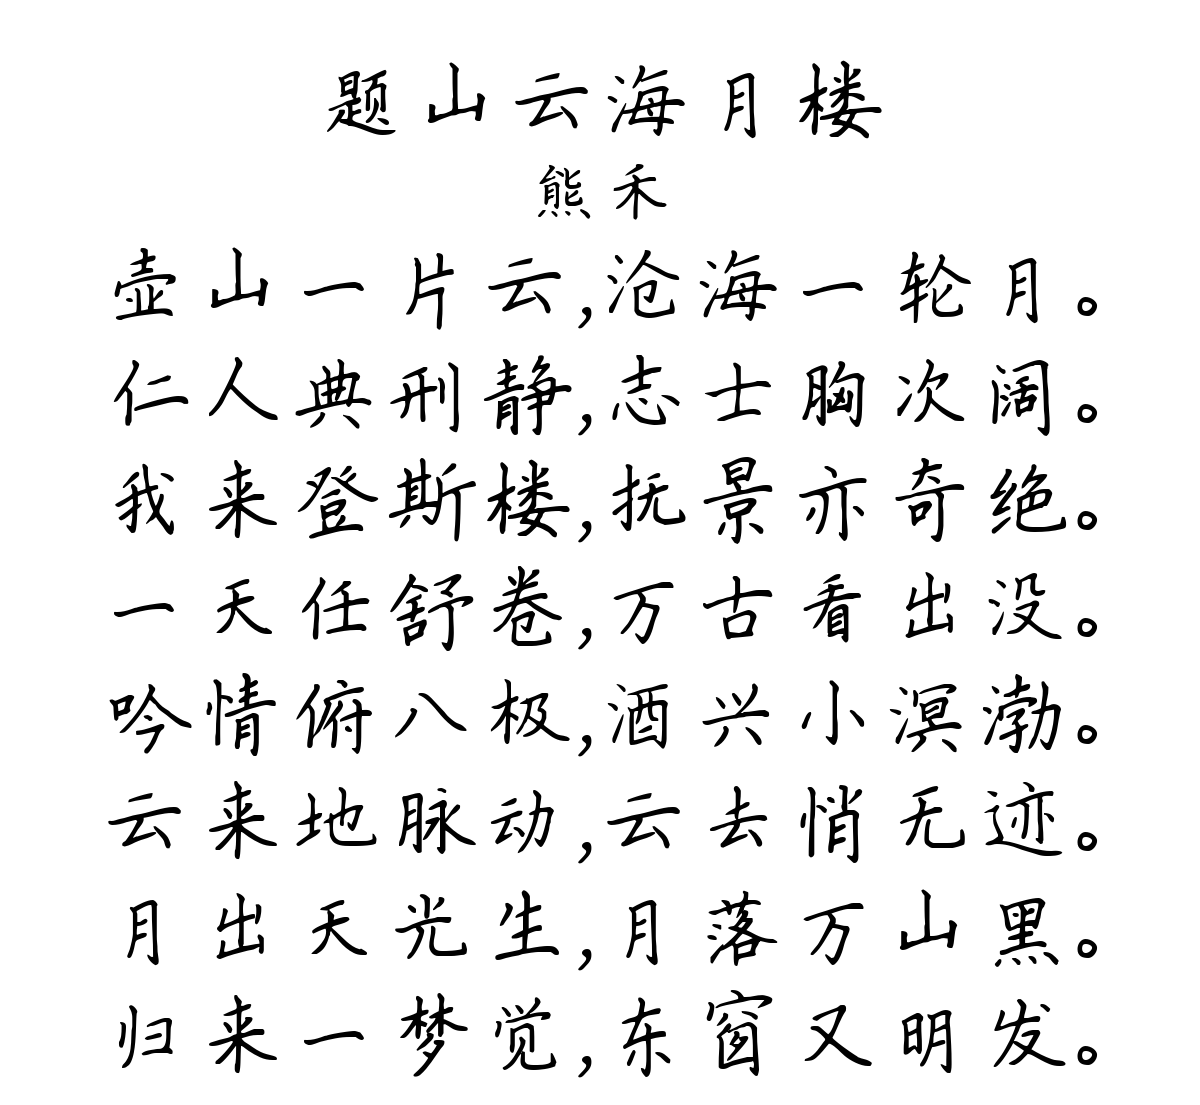 题山云海月楼
熊禾
壶山一片云,沧海一轮月。
仁人典刑静,志士胸次阔。
我来登斯楼,抚景亦奇绝。
一天任舒卷,万古看出没。
吟情俯八极,酒兴小溟渤。
云来地脉动,云去悄无迹。
月出天光生,月落万山黑。
归来一梦觉,东窗又明发。